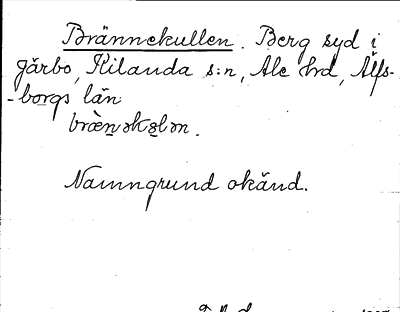 Brännekullen. Berg syd i
gärbo, Kilanda s:n, Ale hrd, Älfs-
-borgs län
bræ̀nəkɵlən.
Namngrund okänd.